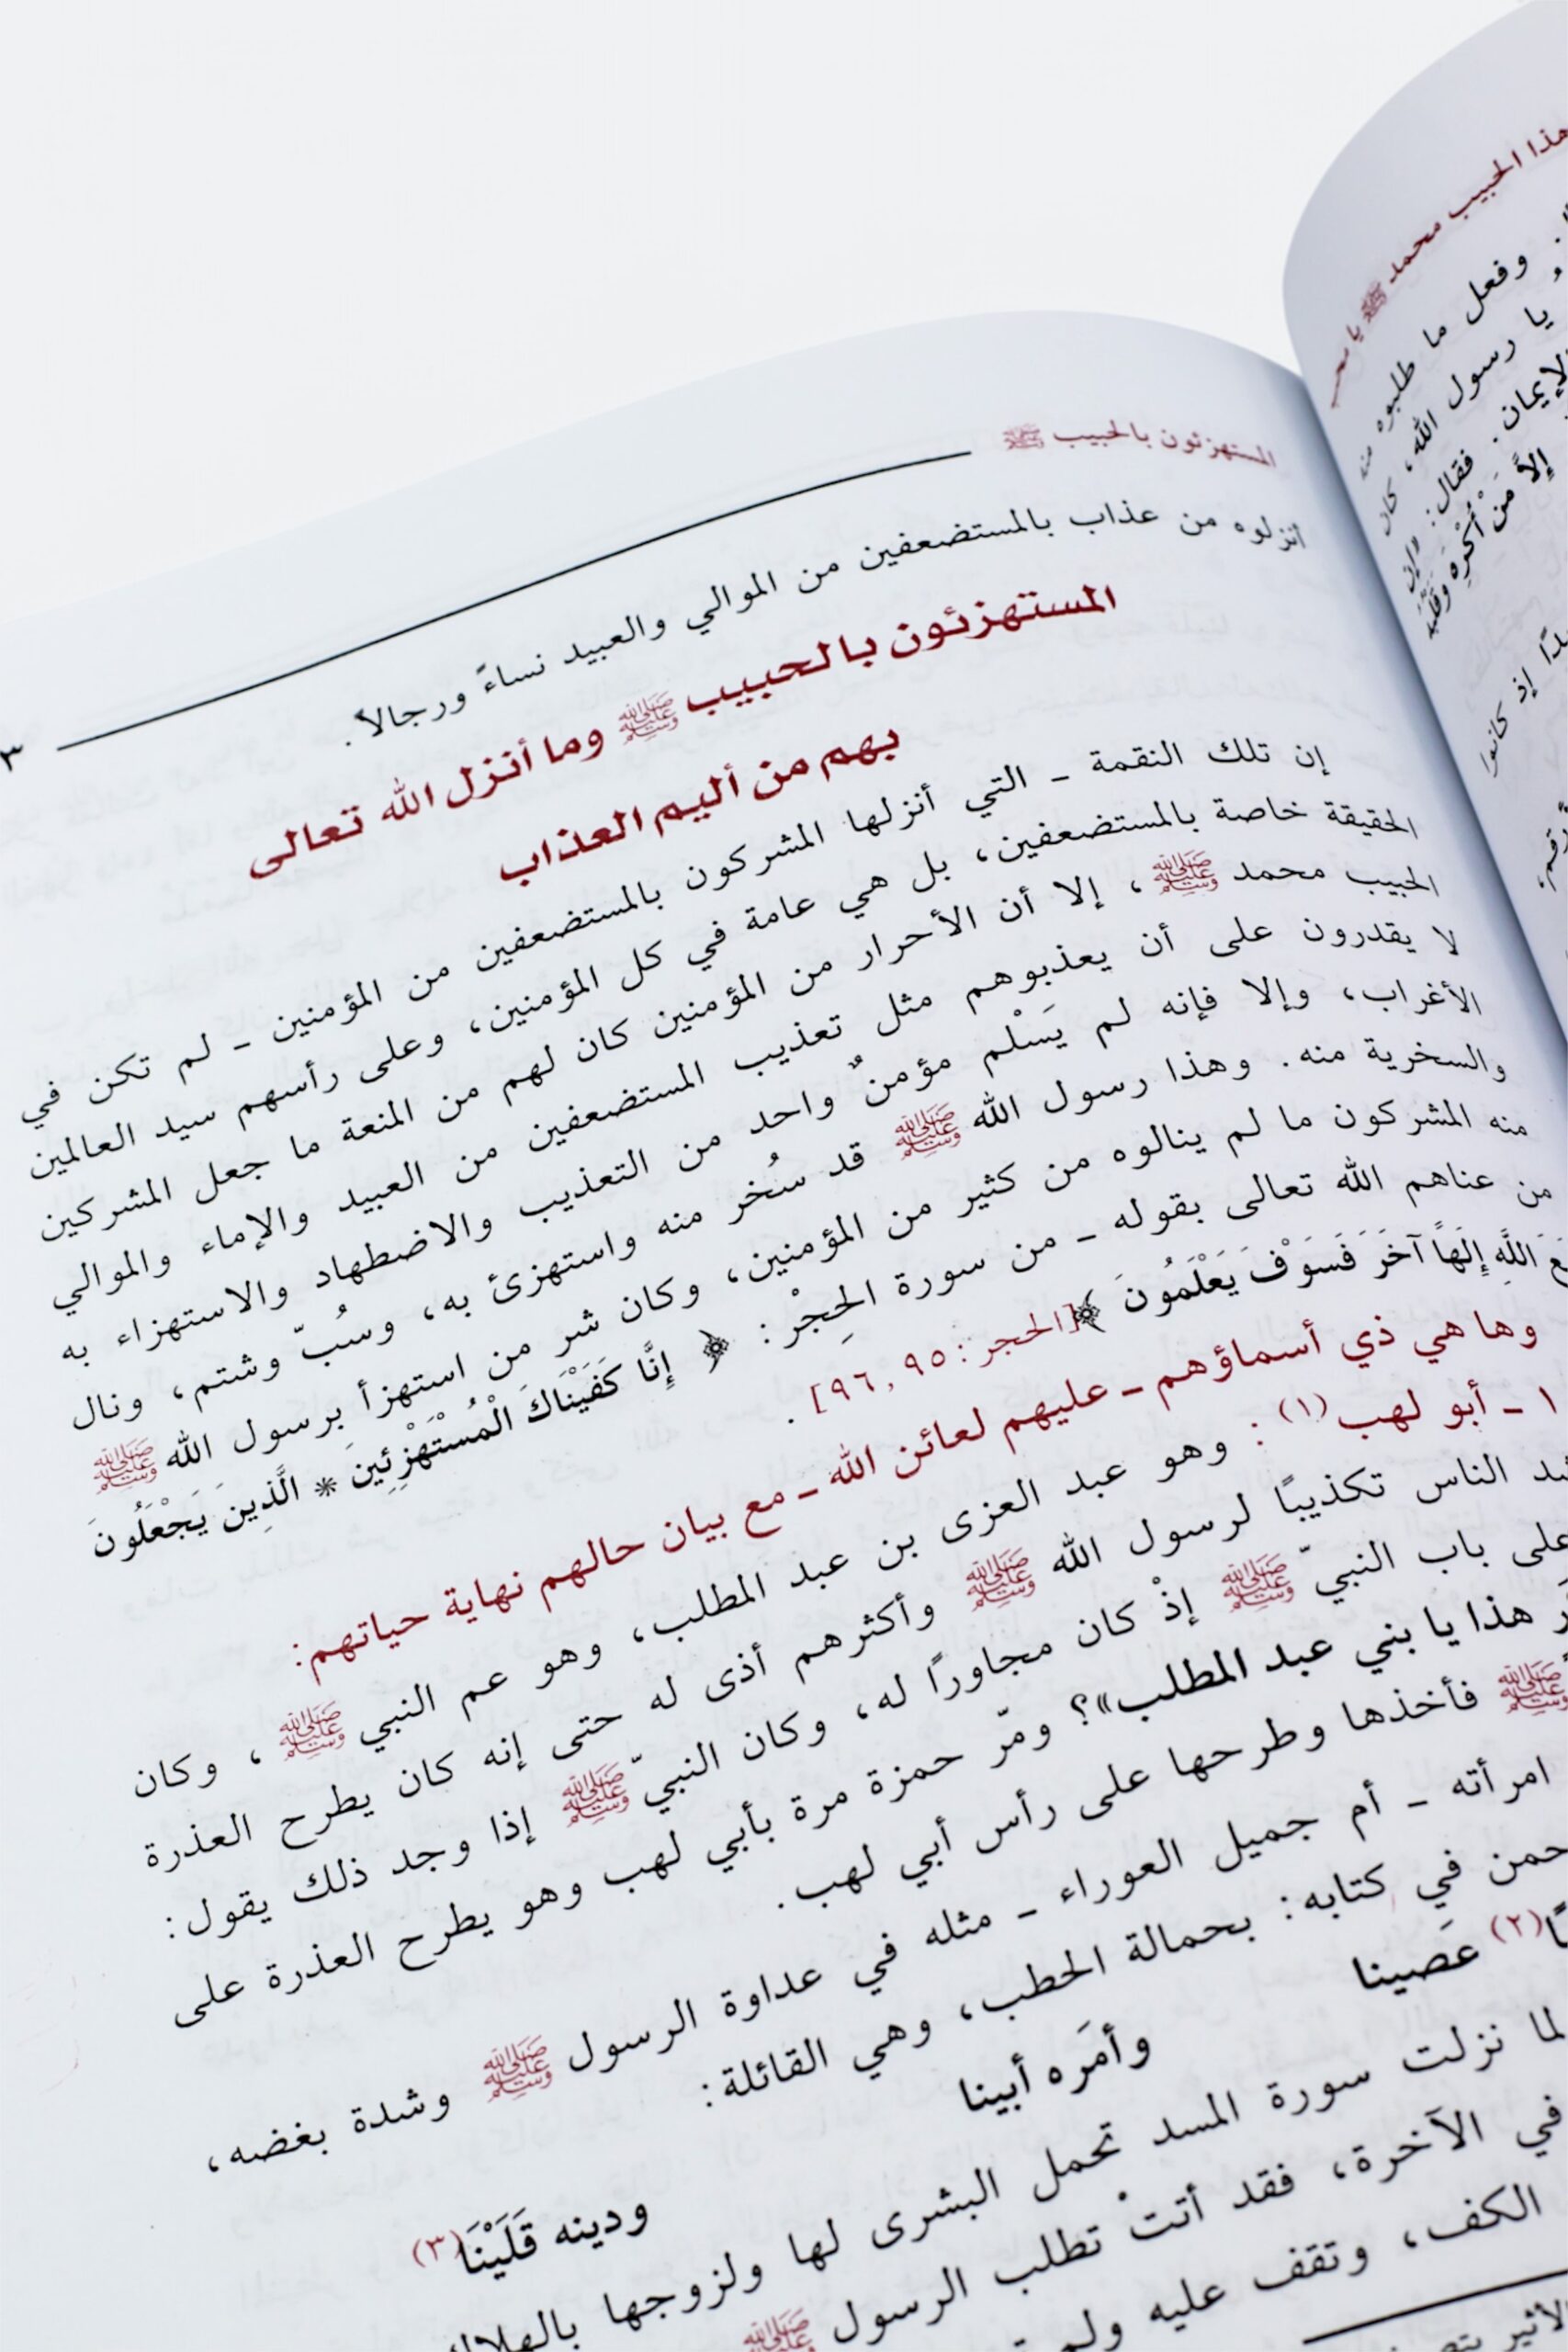 هذا الحبيب محمد ﷺ يا محب
وفعل ما طلبوه منه
يا رسول الله، كان
الإيمان. فقال: وإن
إِلَّا مَنْ أُكْرِهَ وَقَلْبُهُ
إذ كانوا
المستهزئون بالحبيب ﷺ
٣
أنزلوه من عذاب بالمستضعفين من الموالي والعبيد نساءً ورجالاً.
المستهزئون بالحبيب ﷺ وما أنزل الله تعالى
بهم من أليم العذاب
إن تلك النقمة ـ التي أنزلها المشركون بالمستضعفين من المؤمنين ـ لم تكن في
الحقيقة خاصة بالمستضعفين، بل هي عامة في كل المؤمنين، وعلى رأسهم سيد العالمين
الحبيب محمد ﷺ، إلا أن الأحرار من المؤمنين كان لهم من المنعة ما جعل المشركين
لا يقدرون على أن يعذبوهم مثل تعذيب المستضعفين من العبيد والإماء والموالي
الأغراب، وإلا فإنه لم يَسْلم مؤمنٌ واحد من التعذيب والاضطهاد والاستهزاء به
والسخرية منه. وهذا رسول الله ﷺ قد سُخر منه واستهزئ به، وسُبّ وشتم، ونال
منه المشركون ما لم ينالوه من كثير من المؤمنين، وكان شر من استهزأ برسول الله ﷺ
من عناهم الله تعالى بقوله ـ من سورة الحِجْر: ﴿ إِنَّا كَفَيْنَاكَ الْمُسْتَهْزِئِينَ * الَّذِينَ يَجْعَلُونَ
اللَّهِ إِلَهًا آخَرَ فَسَوْفَ يَعْلَمُونَ ﴾ [الحجر: ٩٥, ٩٦].
وها هي ذي أسماؤهم ـ عليهم لعائن الله ـ مع بيان حالهم نهاية حياتهم:
١ ـ أبو لهب(١): وهو عبد العزى بن عبد المطلب، وهو عم النبي ﷺ، وكان
الناس تكذيبًا لرسول الله ﷺ وأكثرهم أذى له حتى إنه كان يطرح العذرة
على باب النبيّ ﷺ إذْ كان مجاورًا له، وكان النبيّ ﷺ إذا وجد ذلك يقول:
هذا يا بني عبد المطلب»؟ ومرّ حمزة مرة بأبي لهب وهو يطرح العذرة على
ﷺ فأخذها وطرحها على رأس أبي لهب.
امرأته ـ أم جميل العوراء ـ مثله في عداوة الرسول ﷺ وشدة بغضه،
في كتابه: بحمالة الحطب، وهي القائلة:
(٢) عَصينا وأمَره أبينا ودينه قَلَيْنَا(٣)
لما نزلت سورة المسد تحمل البشرى لها ولزوجها
في الآخرة، فقد أتتْ تطلب الرسول ﷺ
الكف، وتقف عليه